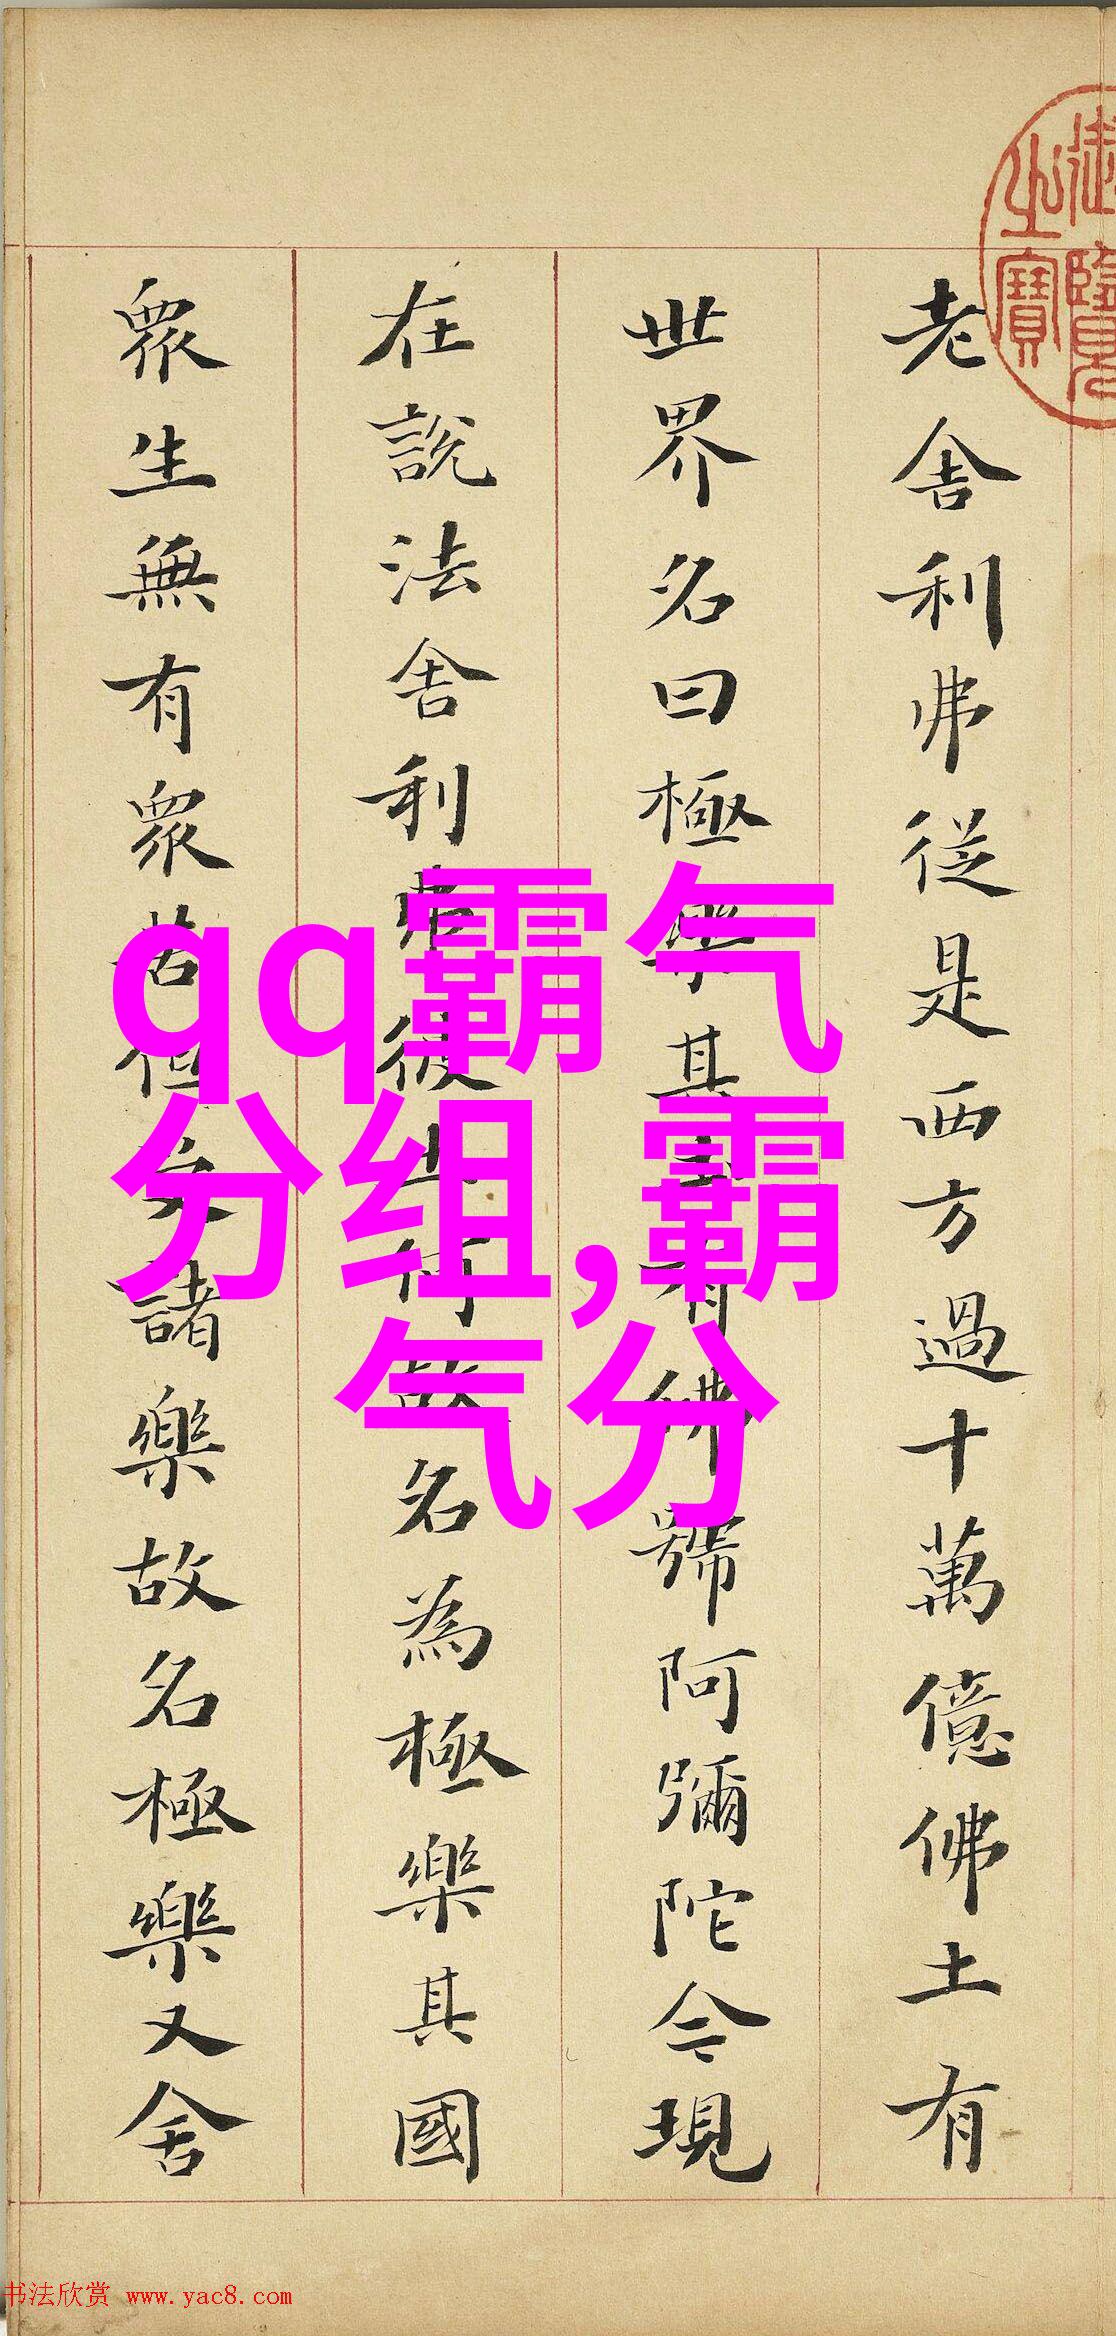 御覽
之寶
老舍利弗從是西方過十萬億佛土有
世界名曰極樂其土有佛號阿彌陀今現
在說法舍利弗彼土何故名為極樂其國
眾生無有眾苦但受諸樂故名極樂又舍
qq霸气
分组,霸
气分
书法欣赏 www.yac8.com